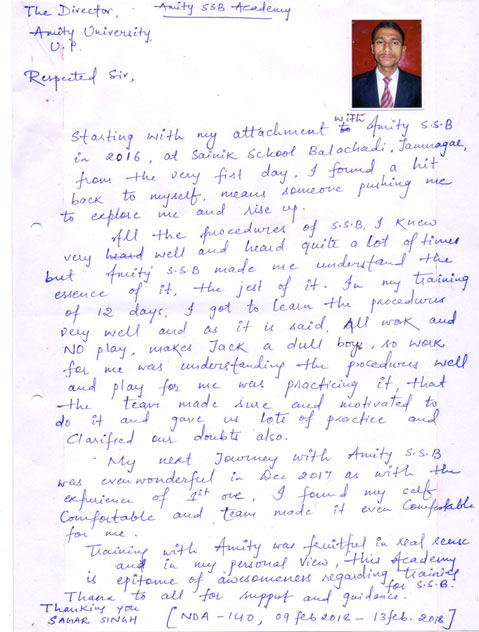 The Director, Amity SSB Academy
Amity University
U.P.
Respected Sir,
Starting with my attachment with Amity S.S.B
in 2016, at Sainik School Balachadi, Jamnagar,
from the very first day, I found a hit
back to myself, means someone pushing me
to explore me and rise up.
All the procedures of S.S.B, I knew
very heard well and heard quite a lot of times
but Amity S.S.B made me understand the
essence of it, the jest of it. In my training
of 12 days, I got to learn the procedures
very well and as it is said, All work and
NO play, makes Jack a dull boy, so work
for me was understanding the procedures well
and play for me was practicing it, that
the team made sure and motivated to
do it and gave us lots of practice and
Clarified our doubts also.
My next Journey with Amity S.S.B
was even wonderful in Dec 2017 as with the
experience of 1st one, I found my self
Comfortable and team made it even Comfortable
for me.
Training with Amity was fruitful in real sense
and in my personal view, this Academy
is epitome of awesomeness regarding training
for S.S.B.
Thank to all for support and guidance.
Thanking you
SAGAR SINGH [NDA - 140, 09 feb 2018 - 13 feb. 2018]